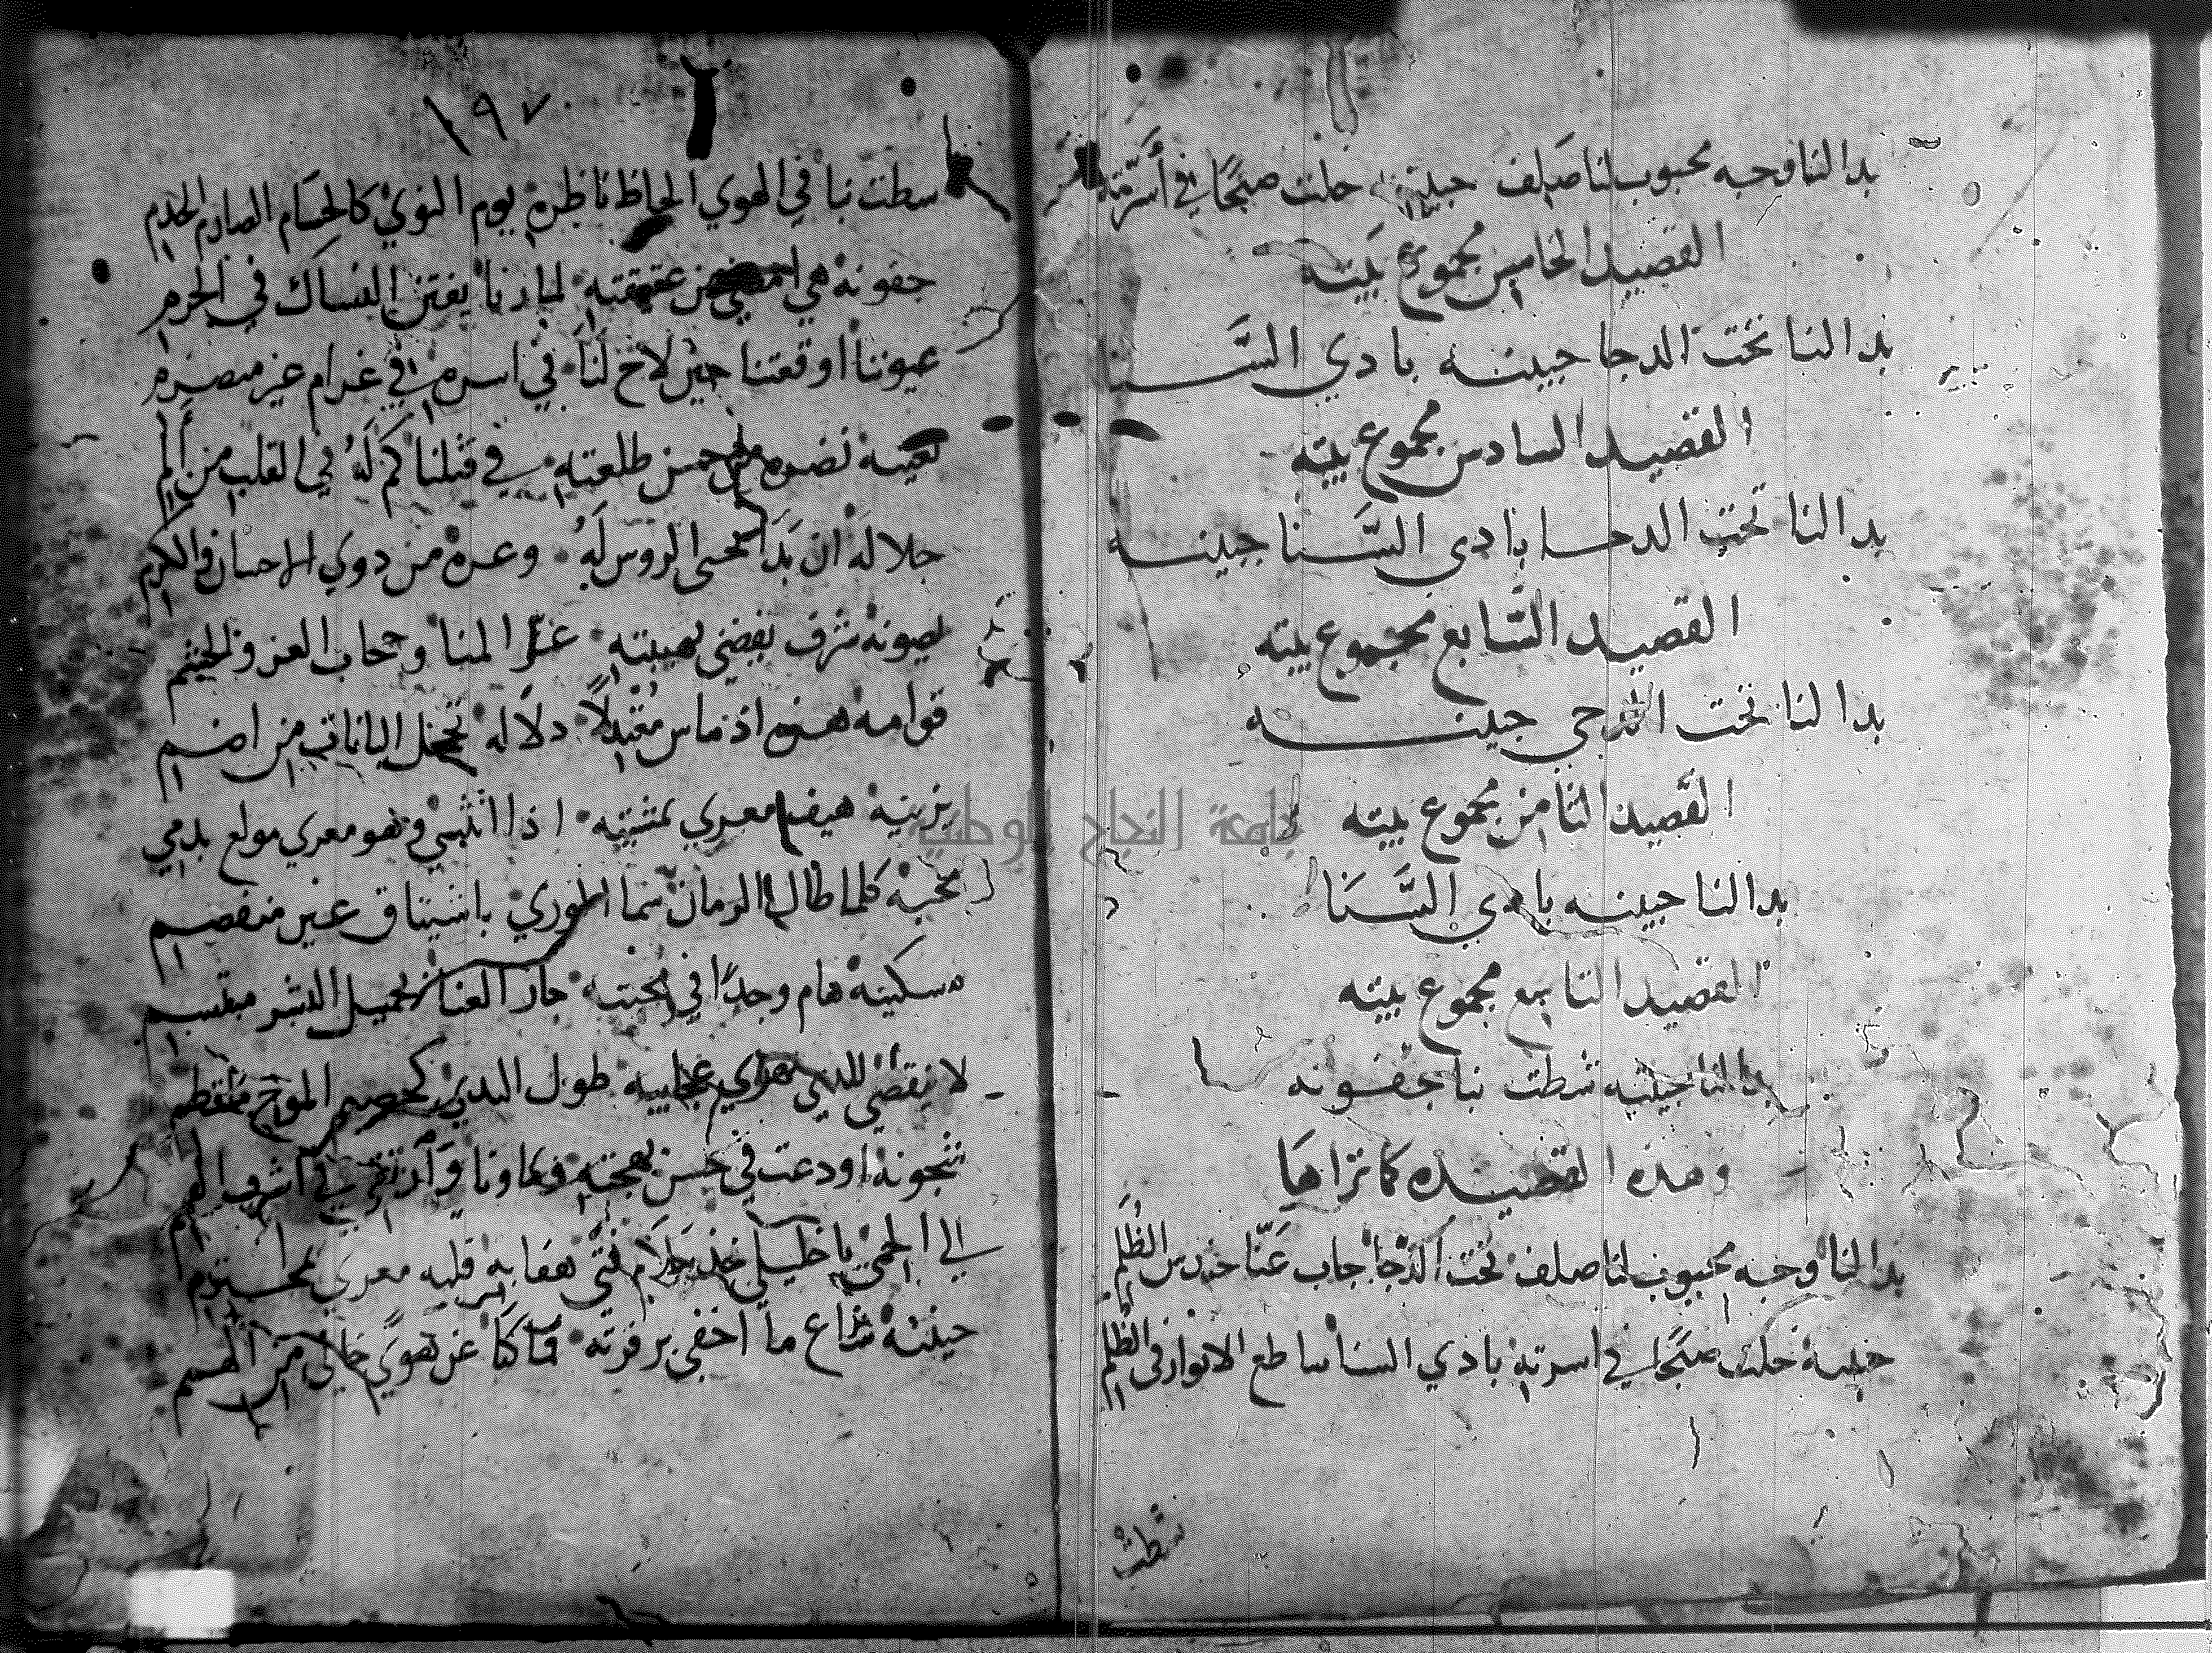 بدا لنا وجه محبوب لنا صلف جبينه حلت صبحًا في أسرّته
القصيد الخامس مجموع بيته
بدا لنا تحت الدجا جبينه بادي السَّنا
القصيد السادس مجموع بيته
بدا لنا تحت الدجا بادي السَّنا جبينه
القصيد السَّابع مجموع بيته
بدا لنا تحت الدجى جبينه
القصيد الثامن مجموع بيته
بدا لنا جبينه بادي السَّنا
القصيد التاسع مجموع بيته
بدا لنا جبينه سطت بنا جفونه
وهذه القصيده كما تراها
بدا لنا وجه محبوب لنا صلف تحت الدجا جاب عَنّا حندس الظُلَم
جبينه حلت صبحًا في اسرته بادي السنا ساطع الانوار في الظلم
سطت
١٩٧
سطت بنا في الهوي الحاظ ناظره يوم النوي كالحسَام الصارم الخذم
جفونه هي امضي من عقيقته لما رنا يفتن النساك في الحرم
عيوننا اوقعتنا حين لاح لنَا في اسره في غرام غير منصرم
لعينه نضره من حسن طلعته في قتلنا كم لَهُ في القلب من أَلم
جلاله ان بَدَا تحنى الروس لَهُ وعزه من ذوي الاحسان والكرم
يصونه شرف يقضي بهيبته عزّ المنا وحجاب العز والحشم
قوامه هزه اذ ماس مقتبلاً دلاله تخجل البانات من اضم
يزينه هيف مغري بمشيته اذا انثني وهو مغري مولع بدمي
تحبه كلما طال الزمان نما الهوي باشتياق غير منفصم
مسكينه هام وجدًا في محبته حاز العنا بجميل البشر مبتسم
لا ينقضي للذي يهوي عجايبه طول المدي كخضم الموج ملتطم
شجونه اودعت في حسن بهجته
الي الحمي يا خليلي فتًى قلبه مغري
حنينه شاع ما اخفي بزفرته من الهمم